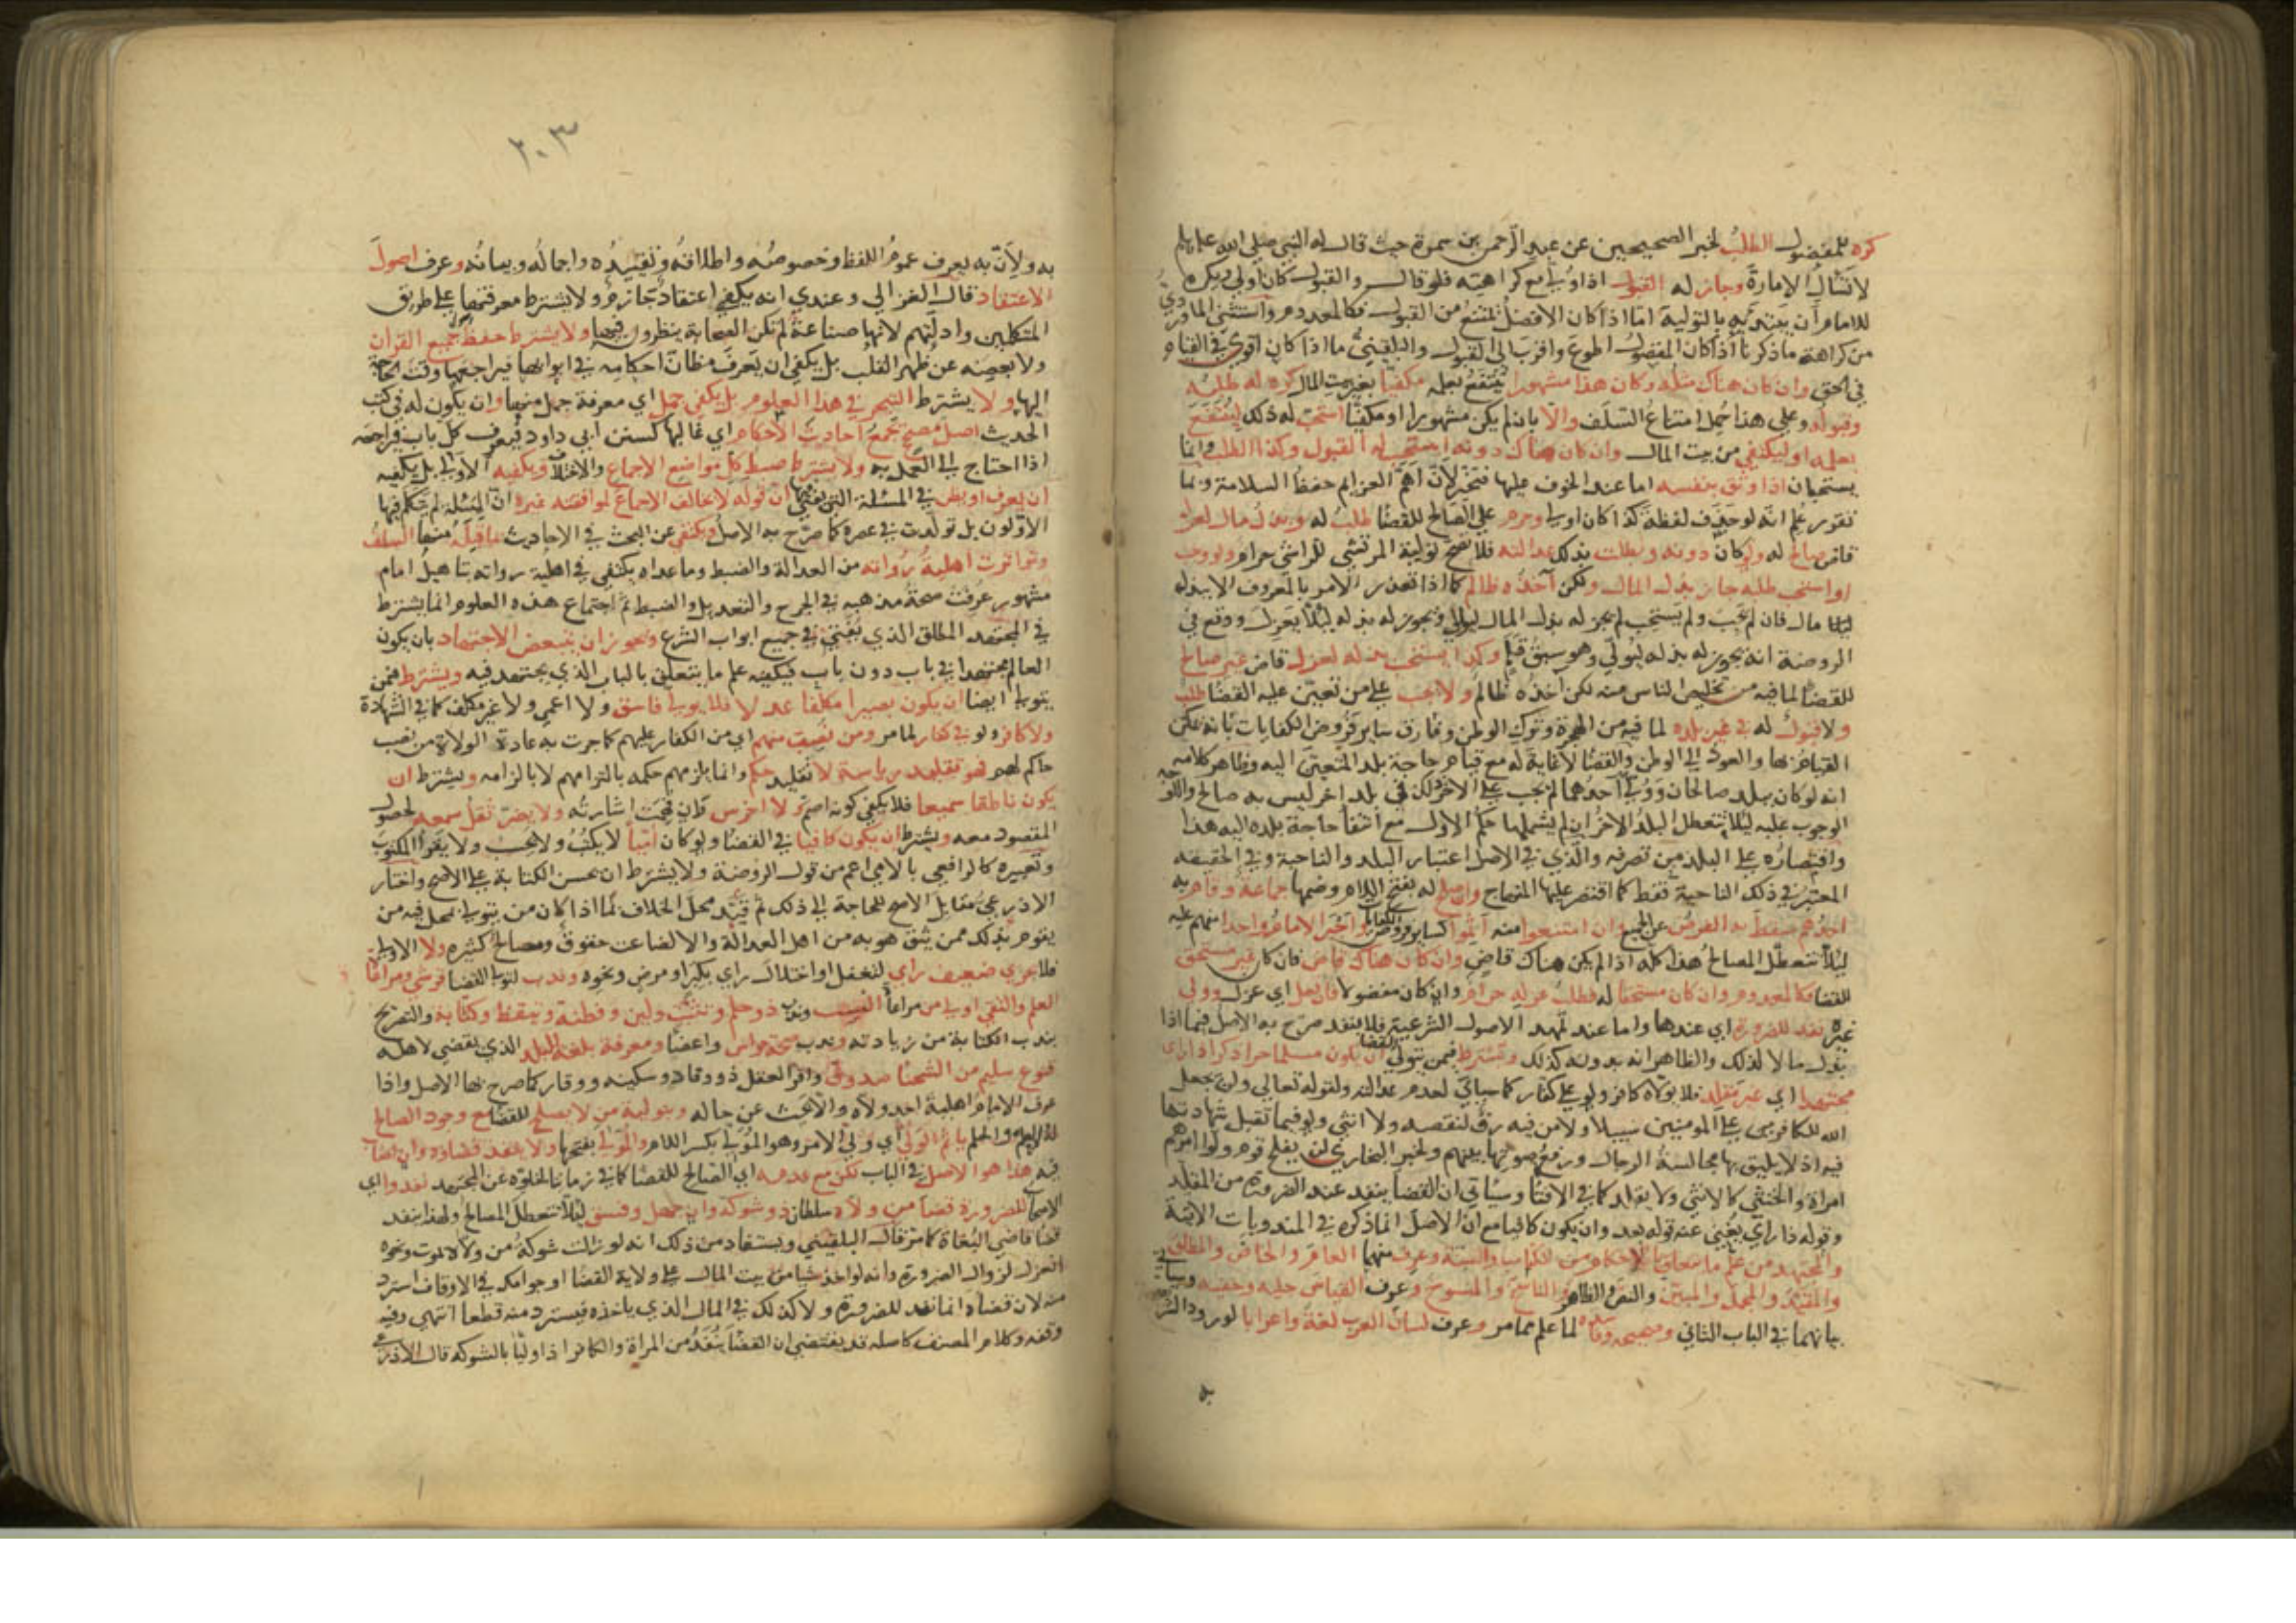 كره للمفضول الطلب لخبر الصحيحين عن عبد الرحمن بن سمرة حيث قال له النبي صلى الله عليه وسلم
لا تسأل الإمارة وجاز له القبول اذا ولي مع كراهيته فلو قال والقبول كان أولى ويكره
للامام أن يبتديه بالتولية اما اذا كان الافضل يمتنع من القبول فكالمعدوم واستثنى الماوردي
من كراهة ما ذكرنا اذا كان المفضول اطوع واقرب الى القبول والبلقيني ما اذا كان اقوى في القيام
في الحق وان كان هناك مثله وكان هذا مشهورا ينتفع بعلمه مكفيا بغير بيت المال كره له طلبه
وقبوله وعلى هذا حمل امتناع السلف والا بان لم يكن مشهورا او مكفيا استحب له ذلك لينتفع
بعلمه او ليكتفي من بيت المال وان كان هناك دونه استحب له القبول وكذا الطلب وانما
يستحبان اذا وثق بنفسه اما عند الخوف عليها فيحترز لأن أهم العزايم حفظ السلامة وبما
تقرر علم انه لو حذف لفظة كذا كان اولى وحرم على الصالح للقضا طلب له وبذل مال لعزل
قاض صالح له ولو كان دونه وبطلت بذلك عدالته فلا تصح توليته المرتشي للراشي حرام ولو وجب
او استحب طلبه جاز بذل المال ولكن آخذه ظالم كما اذا تعذر الامر بالمعروف الا ببذل
مال فان لم يجب ولم يستحب لم يجز له بذل المال ليولى ويجوز له بذله ليلا يعزل ووقع في
الروضة انه يجوز له بذله ليولى وهو سبق قلم وكذا يستحب بذله لعزل قاض غير صالح
للقضا لما فيه من تخليص الناس منه لكن اخذه ظالم ولا يجب على من تعين عليه القضا طلب
ولا قبول له في غير بلده لما فيه من الهجرة وترك الوطن وفارق ساير فروض الكفايات بانه يمكن
القيام بها والعود الى الوطن والقضا لا غاية له مع قيام حاجة بلد المتعين اليه وظاهر كلامه
انه لو كان ببلد صالحان وولي أحدهما لم يجب على الآخر ذلك في بلد اخر ليس به صالح والاوجه
الوجوب عليه ليلا تتعطل البلد الاخر ان لم يشملها حكم الاول مع انتفا حاجة بلده اليه هذا
واقتصاره على البلد من تصرفه والذي في الاصل اعتبار البلد والناحية وفي الحقيقة
المعتبر في ذلك الناحية فقط كما اقتصر عليها المنهاج وان صلح له بفتح اللام وضمها جماعة وقام به
احدهم سقط به الفرض عن الجميع وان امتنعوا منه اثموا كساير فروض الكفايات واجبر الامام واحدا منهم عليه
ليلا تتعطل المصالح هذا كله اذا لم يكن هناك قاض وان كان هناك قاض فان كان غير مستحق
للقضا فكالمعدوم وان كان مستحقا له فطلب عزله حرام وان كان مفضولا فان فعل اي عزل وولي
غيره نفذ للضرورة اي عندها واما عند تمهد الاصول الشرعية فلا ينفذ صرح به الاصل فيما اذا
بذل مالا لذلك والظاهر انه بدونه كذلك ويشترط فيمن يتولى القضا ان يكون مسلما حرا ذكرا ذا راى
مجتهدا اي غير مقلد فلا يولاه كافر ولو على كفار كما سياتي لعدم عدالته ولقوله تعالى ولن يجعل
الله للكافرين على المومنين سبيلا ولا من فيه رق لنقصه ولا انثى ولو فيما تقبل شهادتها
فيه اذ لا يليق بها مجالسة الرجال ورفع صوتها بينهم ولخبر البخاري لن يفلح قوم ولوا امرهم
امراة والخنثى كالانثى ولا يقلد كما في الافتا وسياتي ان القضا ينفذ عند الضرورة من المقلد
وقوله ذا رأي يغني عنه قوله بعد وان يكون كافيا مع ان الاصل انما ذكره في المندوبات الاتية
والمجتهد من علم ما يتعلق بالاحكام من الكتاب والسنة وعرف منهما العام والخاص والمطلق
والمقيد والمجمل والمبين والنص والظاهر والناسخ والمنسوخ وعرف القياس جليه وخفيه وسياتي
بيانهما في الباب الثاني وصحيحه وفاسده لما علم مما مر وعرف لسان العرب لغة واعرابا لورود الشرع
به
٢٠٣
به ولأن به يعرف عموم اللفظ وخصوصه واطلاقه وتقييده واجماله وبيانه وعرف اصول
الاعتقاد قال الغزالي وعندي انه يكفي اعتقاد جازم ولا يشترط معرفتها على طريق
المتكلمين وادلتهم لانها صناعة لم تكن الصحابة ينظرون فيها ولا يشترط حفظ جميع القرآن
ولا بعضه عن ظهر القلب بل يكفي ان يعرف مظان احكامه في ابوابها فيراجعها وقت الحاجة
اليها ولا يشترط التبحر في هذا العلوم بل يكفي جمل اي معرفة جمل منها وان يكون له في كتب
الحديث اصل مصحح تجمع احاديث الأحكام اي غالبها كسنن ابي داود فيعرف كل باب فيراجعه
اذا احتاج الى العمل به ولا يشترط ضبط كل مواضع الاجماع والاختلاف ويكفيه الاولى بل يكفيه
ان يعرف او يظن في المسئلة التي يفتي بها ان قوله لا يخالف الاجماع لموافقته غيره ان المسئلة لم يتكلم فيها
الاولون بل تولدت في عصره كما صرح به الاصل ويكتفي عن البحث في الاحاديث بما قبله منها السلف
وتواترت اهلية رواته من العدالة والضبط وما عداه يكتفي في اهلية رواته بتاهيل امام
مشهور عرفت صحة مذهبه في الجرح والتعديل والضبط ثم اجتماع هذه العلوم انما يشترط
في المجتهد المطلق الذي يفتي في جميع ابواب الشرع ويجوز ان يتبعض الاجتهاد بان يكون
العالم مجتهدا في باب دون باب فيكفيه علم ما يتعلق بالباب الذي يجتهد فيه ويشترط فيمن
يتولى ايضا ان يكون بصيرا مكلفا عدلا فلا يولى فاسق ولا اعمى ولا غير مكلف كما في الشهادة
ولا كافر ولو في كفار لما مر ومن نصب منهم اي من الكفار عليهم كما جرت به عادة الولاة من نصب
حاكم لهم فهو تقليد رياسة لا تقليد حكم وانما يلزمهم حكمه بالتزامهم لا بالزامه ويشترط ان
يكون ناطقا سميعا فلا يكفي كونه اصم ولا اخرس وان فهمت اشارته ولا يضر ثقل سمعه لحصول
المقصود معه ويشترط ان يكون كافيا في القضا ولو كان أميا لا يكتب ولا يحسب ولا يقرأ المكتوب
وتعبيره كالرافعي بالامي اعم من قول الروضة ولا يشترط ان يحسن الكتابة على الاصح واختار
الاذرعي مقابل الاصح للحاجة الى ذلك ثم قيد محل الخلاف بما اذا كان من يتولى بمحل فيه من
يقوم بذلك ممن يثق هو به من اهل العدالة والا لضاعت حقوق ومصالح كثيره ولا
فلا يجزي ضعيف راي لتغفل او اختلال راي بكبر او مرض ونحوه وندب لتولي القضا قرشي ومراعاة
العلم والتقى اولى من مراعاة النسب وندب ذو حلم وتثبت ولين وفطنة وتيقظ وكتابة والتصريح
بندب الكتابة من زيادته وندب صحة حواس واعضا ومعرفة بلغة البلد الذي يقضي لاهله
قنوع سليم من الشحنا صدوق وافر العقل ذو وقار وسكينه ووقار كما صرح بها الاصل واذا
عرف الامام اهلية احد ولاه والا بحث عن حاله وبتولية من لا يصلح للقضا مع وجود الصالح
له والعلم ياثم المولي اي ولي الامر وهو المولي بكسر اللام والمولى بفتحها ولا ينفذ قضاوه وان اصاب
فيه هذا هو الاصل في الباب لكن مع عدمه اي الصالح للقضا كما في زماننا لخلوه عن المجتهد نفذوا اي
الاصحاب للضرورة قضا من ولاه سلطان ذو شوكة وان جهل وفسق ليلا تتعطل المصالح ولهذا ينفذ
قضا قاضي البغاة كما مر قال البلقيني ويستفاد من ذلك انه لو زالت شوكة من ولاه لموت ونحوه
انعزل لزوال الضرورة وانه لو اخذ شيا من بيت المال على ولاية القضا او جوامك في الاوقاف استرد
منه لان قضاه انما نفذ للضرورة ولا كذلك في المال الذي ياخذه فيسترد منه قطعا انتهى وفيه
وقفه وكلام المصنف كاصله قد يقتضي ان القضا ينفذ من المراة والكافر اذا وليا بالشوكة قال الاذرعي